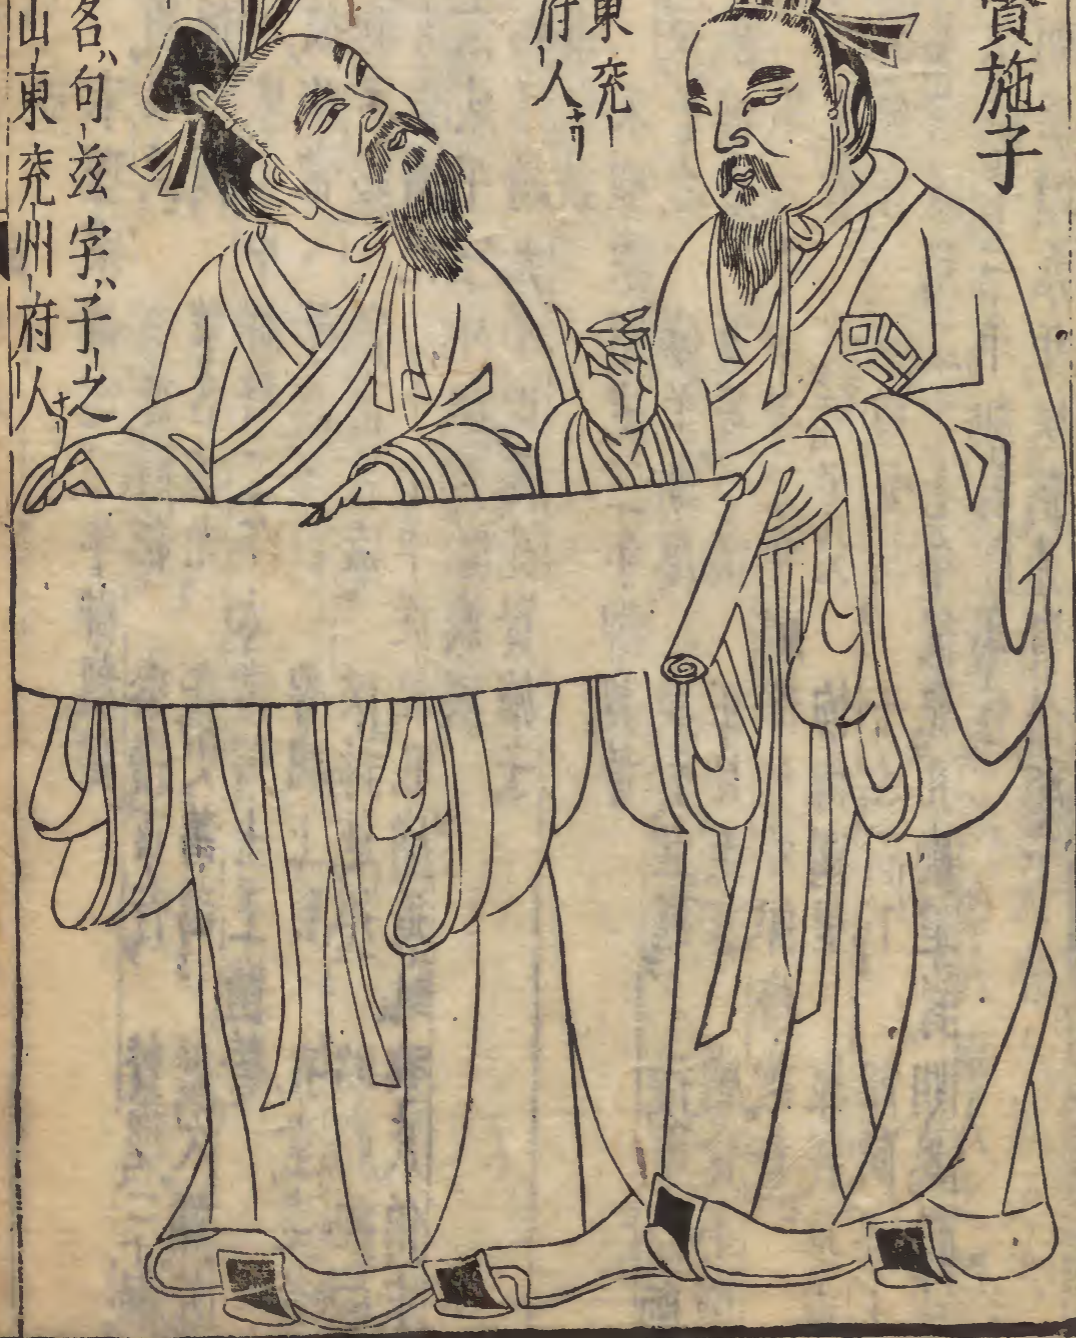 施子
東兖
府人ナリ
名ハ句茲字ハ子之
山東兖州府人ナリ